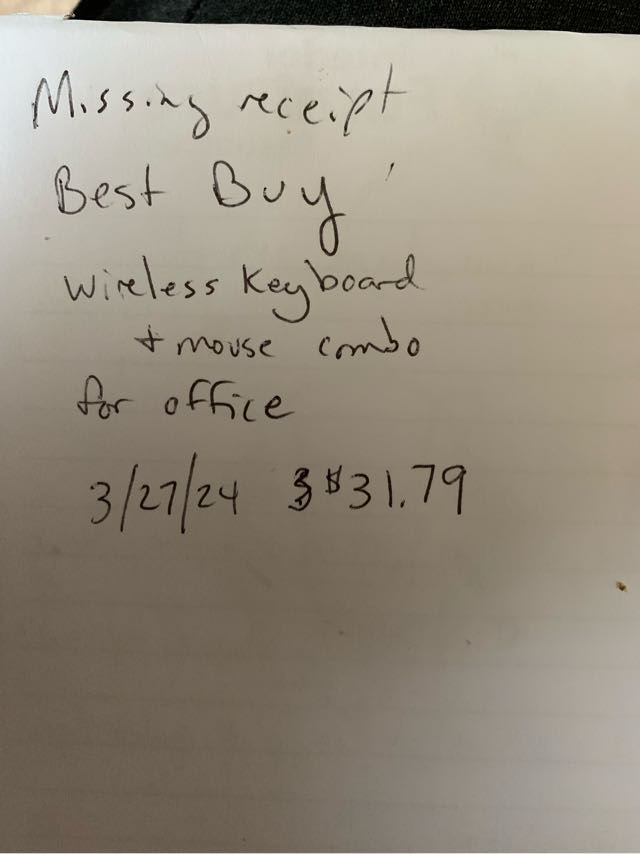 Missing receipt
Best Buy
Wireless Keyboard
+ mouse combo
for office
3/27/24 $31.79